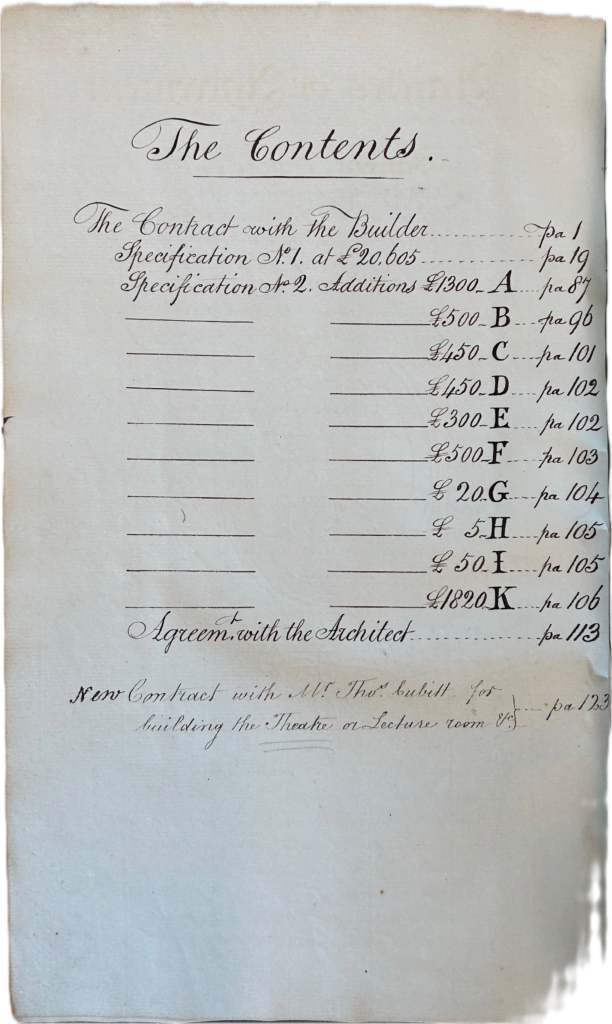 The Contents.
The Contract with the Builder.............. pa 1
Specification No. 1. at £20,605............. pa 19
Specification No. 2. Additions £1300 - A .... pa 87
£500 - B .... pa 96
£450 - C .... pa 101
£450 - D .... pa 102
£300 - E .... pa 102
£500 - F .... pa 103
£ 20. G .... pa 104
£ 5. H .... pa 105
£ 50. I .... pa 105
£1820 K .... pa 106
Agreemt. with the Architect............. pa 113
New Contract with Mr. Thos. Cubitt for
building the Theatre or Lecture room &c } .... pa 123